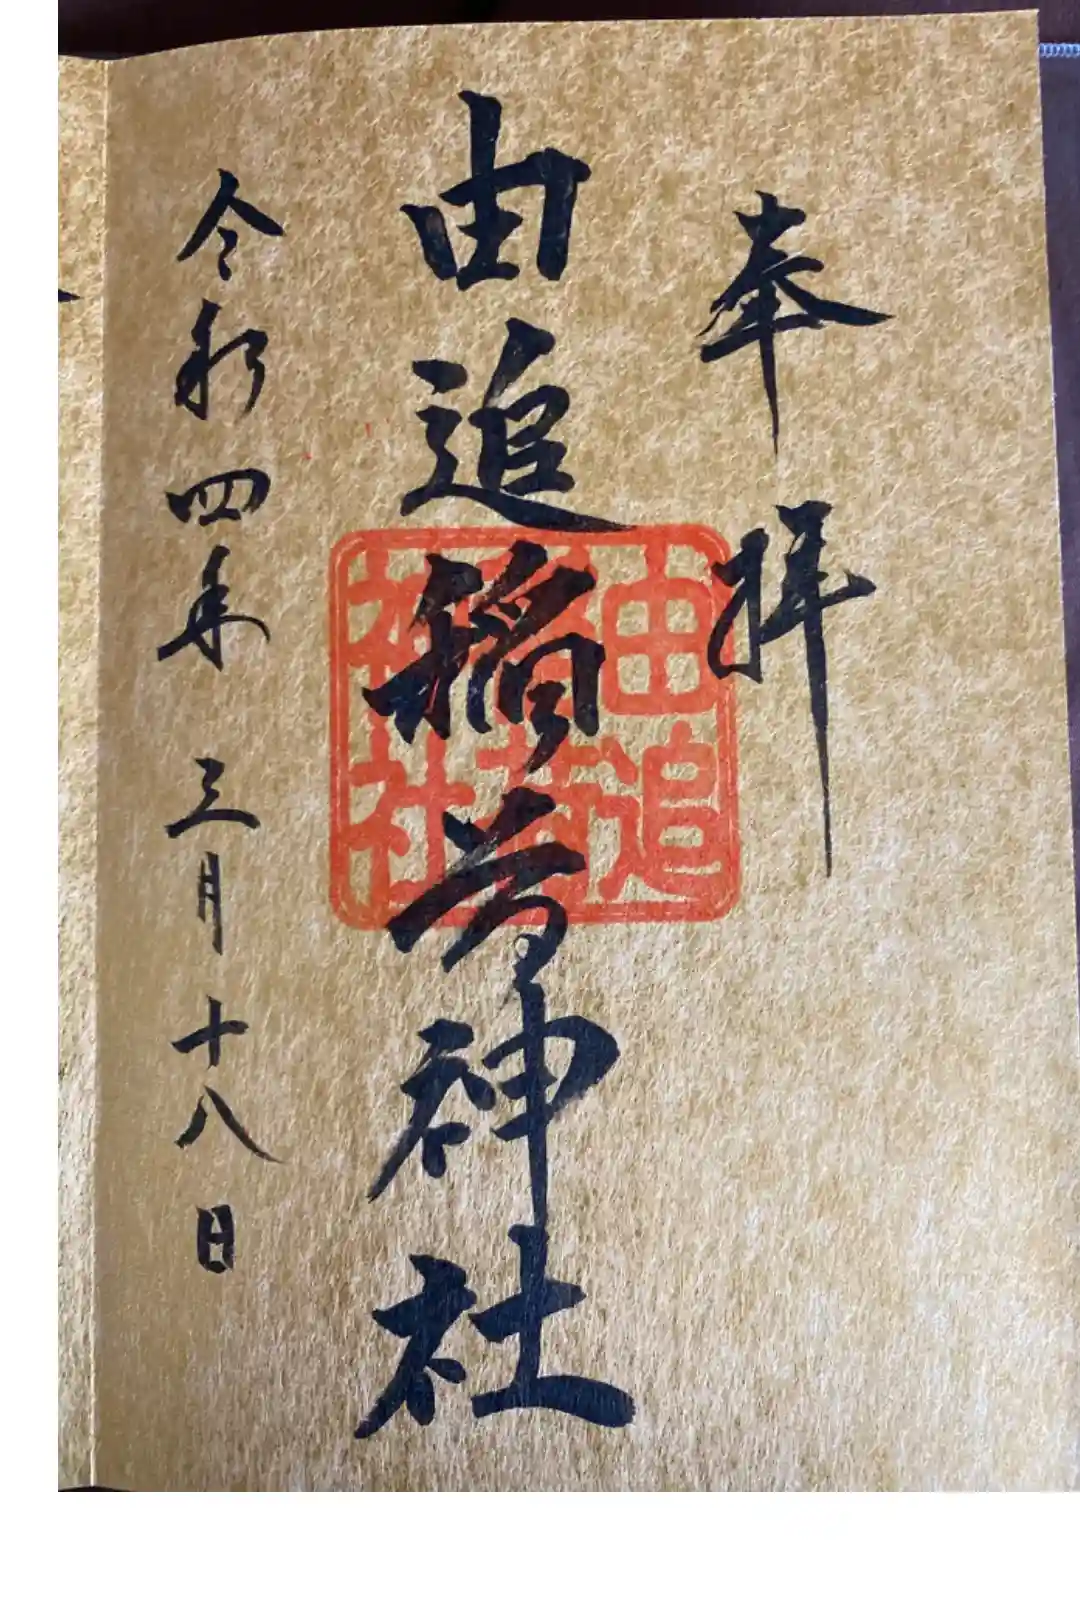 奉拝
由追稲荷神社
由追稲荷神社
令和四年三月十八日